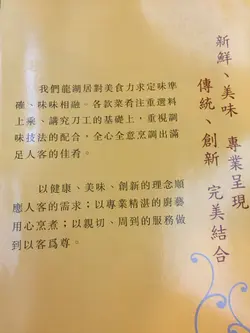 新鮮、美味　專業呈現
傳統、創新　完美結合
我們龍湖居對美食力求定味準
確、味味相融。各款菜肴注重選料
上乘、講究刀工的基礎上，重視調
味技法的配合，全心全意烹調出滿
足人客的佳肴。
以健康、美味、創新的理念順
應人客的需求；以專業精湛的廚藝
用心烹煮；以親切、周到的服務做
到以客爲尊。